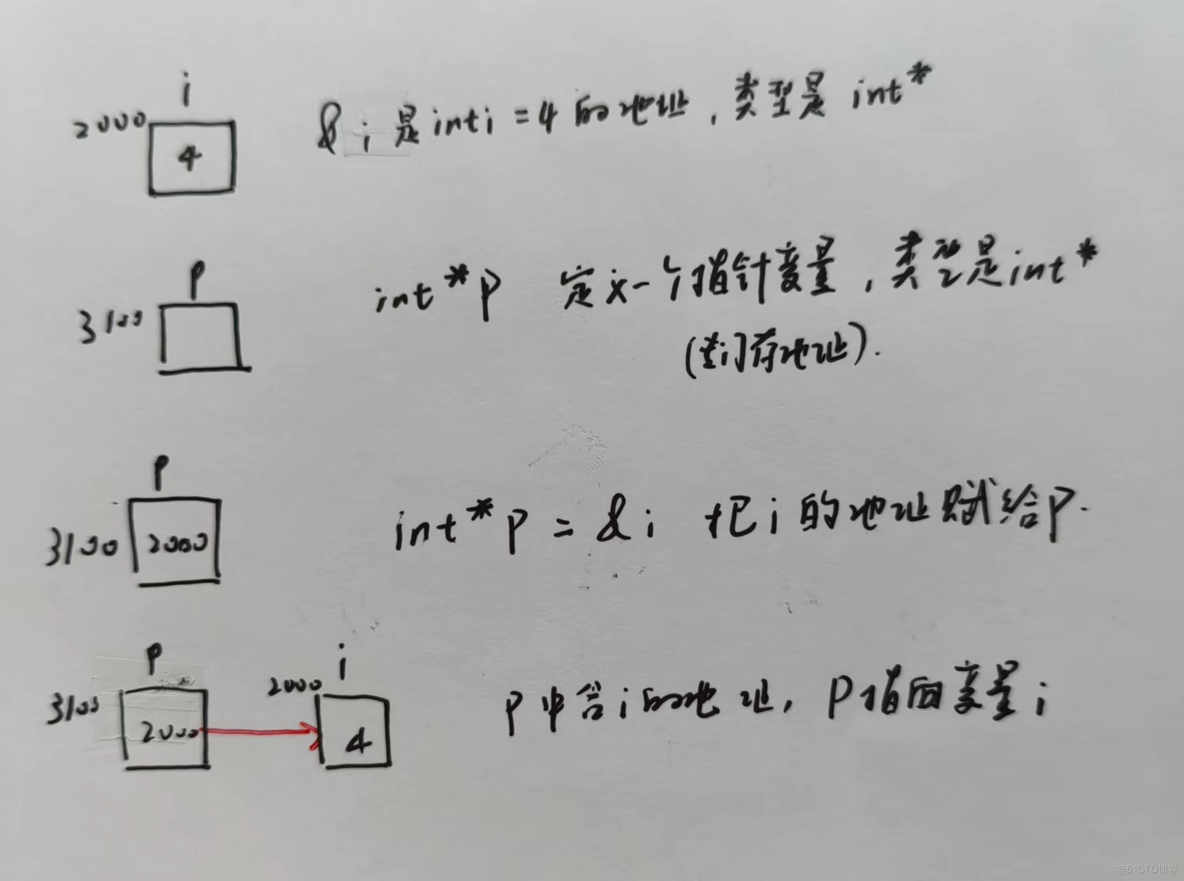 i
2000
4
&i 是 int i = 4 的地址,类型是 int*
p
3100
int *p 定义一个指针变量,类型是int*
(专门存地址).
p
3100
2000
int *p = &i 把i的地址赋给p.
p
3100
2000
i
2000
4
p中含i的地址,p指向变量i
@51CTO博客